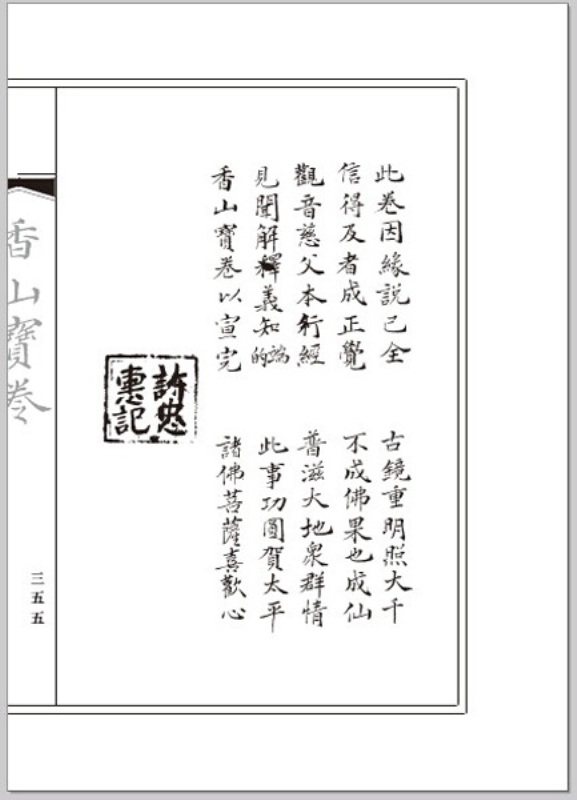 此卷因緣説已全 古鏡重明照大千
信得及者成正覺 不成佛果也成仙
觀音慈父本行經 普滋大地衆群情
見聞解釋義知端的 此事功圓賀太平
香山寶卷以宣完 諸佛菩薩喜歡心
許忠
惠記
香山寶卷
三五五